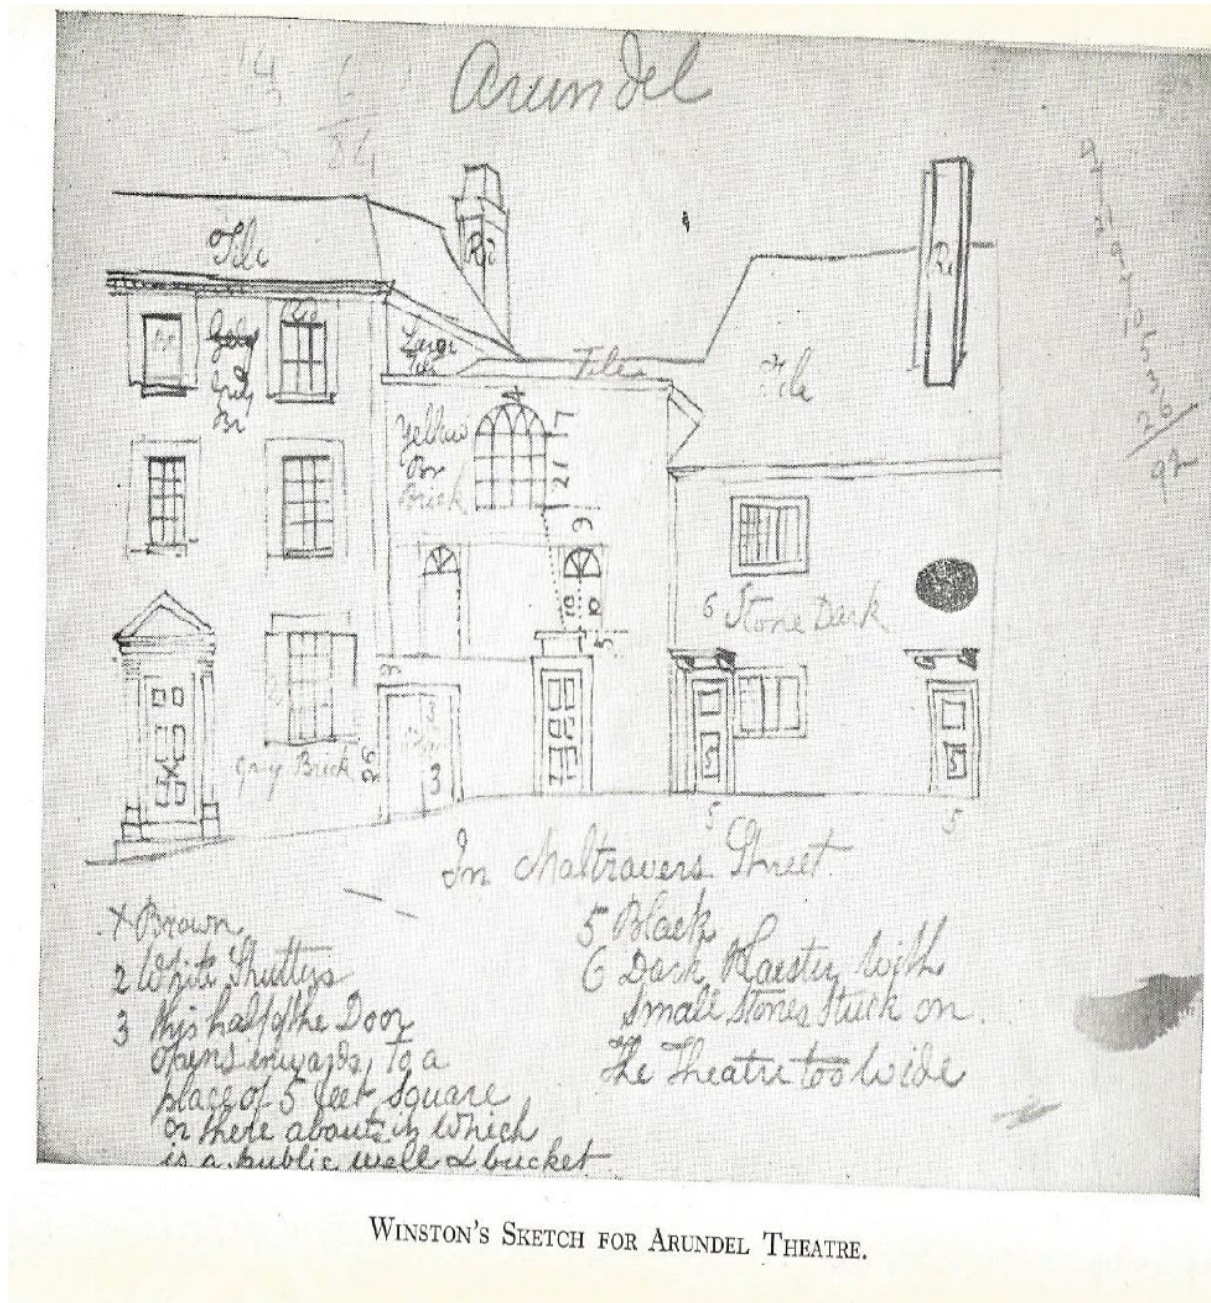 Arundel
14 6
84
Tile
Br
Large
Tile
Tile
Tile
Grey
Br
4
Yellow
Br
Brick
7
21
9
10
6 Stone Dark
5
3
Grey Brick
26
3
5
5
5
5
In Maltravers Street.
X Brown
2 White Shutters
3 this half of the Door
opens inwards, to a
place of 5 feet Square
or there abouts in which
is a public well & bucket
5 Black
6 Dark Plaester With
Small Stones Stuck on.
The Theatre too Wide
4
9
10
5
3
26
92
WINSTON'S SKETCH FOR ARUNDEL THEATRE.